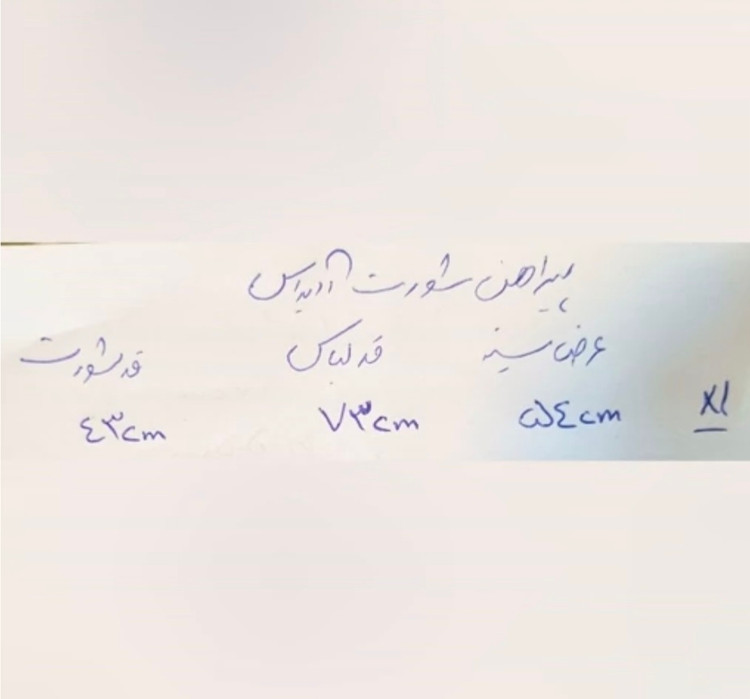 پیراهن شورت آدیداس
عرض سینه قد لباس قد شورت
XL ۵٤cm ۷۳cm ٤۳cm